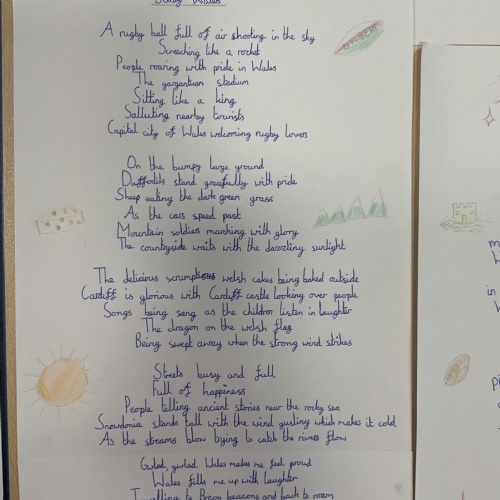 A rugby ball full of air shooting in the sky
Screaching like a rocket
People roaring with pride in Wales
The gargantuan stadium
Sitting like a king
Salluting nearby tourists
Capital city of Wales welcoming rugby lovers
GILBERT
On the bumpy large ground
Daffodils stand greafully with pride
Sheep eating the dark green grass
As the cars speed past
Mountain soldiers marching with glory
The countryside waits with the dazzling sunlight
The delicious scrumptious welsh cakes being baked outside
Cardiff is glorious with Cardiff castle looking over people
Songs being sang as the children listen in laughter
The dragon on the welsh flag
Being swept away when the strong wind strikes
Streets busy and full
Full of happiness
People telling ancient stories near the rocky sea
Snowdonia stands tall with the wind gusting which makes it cold
As the streams blow trying to catch the rivers flow
Gwlad, gwlad Wales makes me feel proud
Wales fills me up with laughter
Travelling to Brecon beacons and back to roam